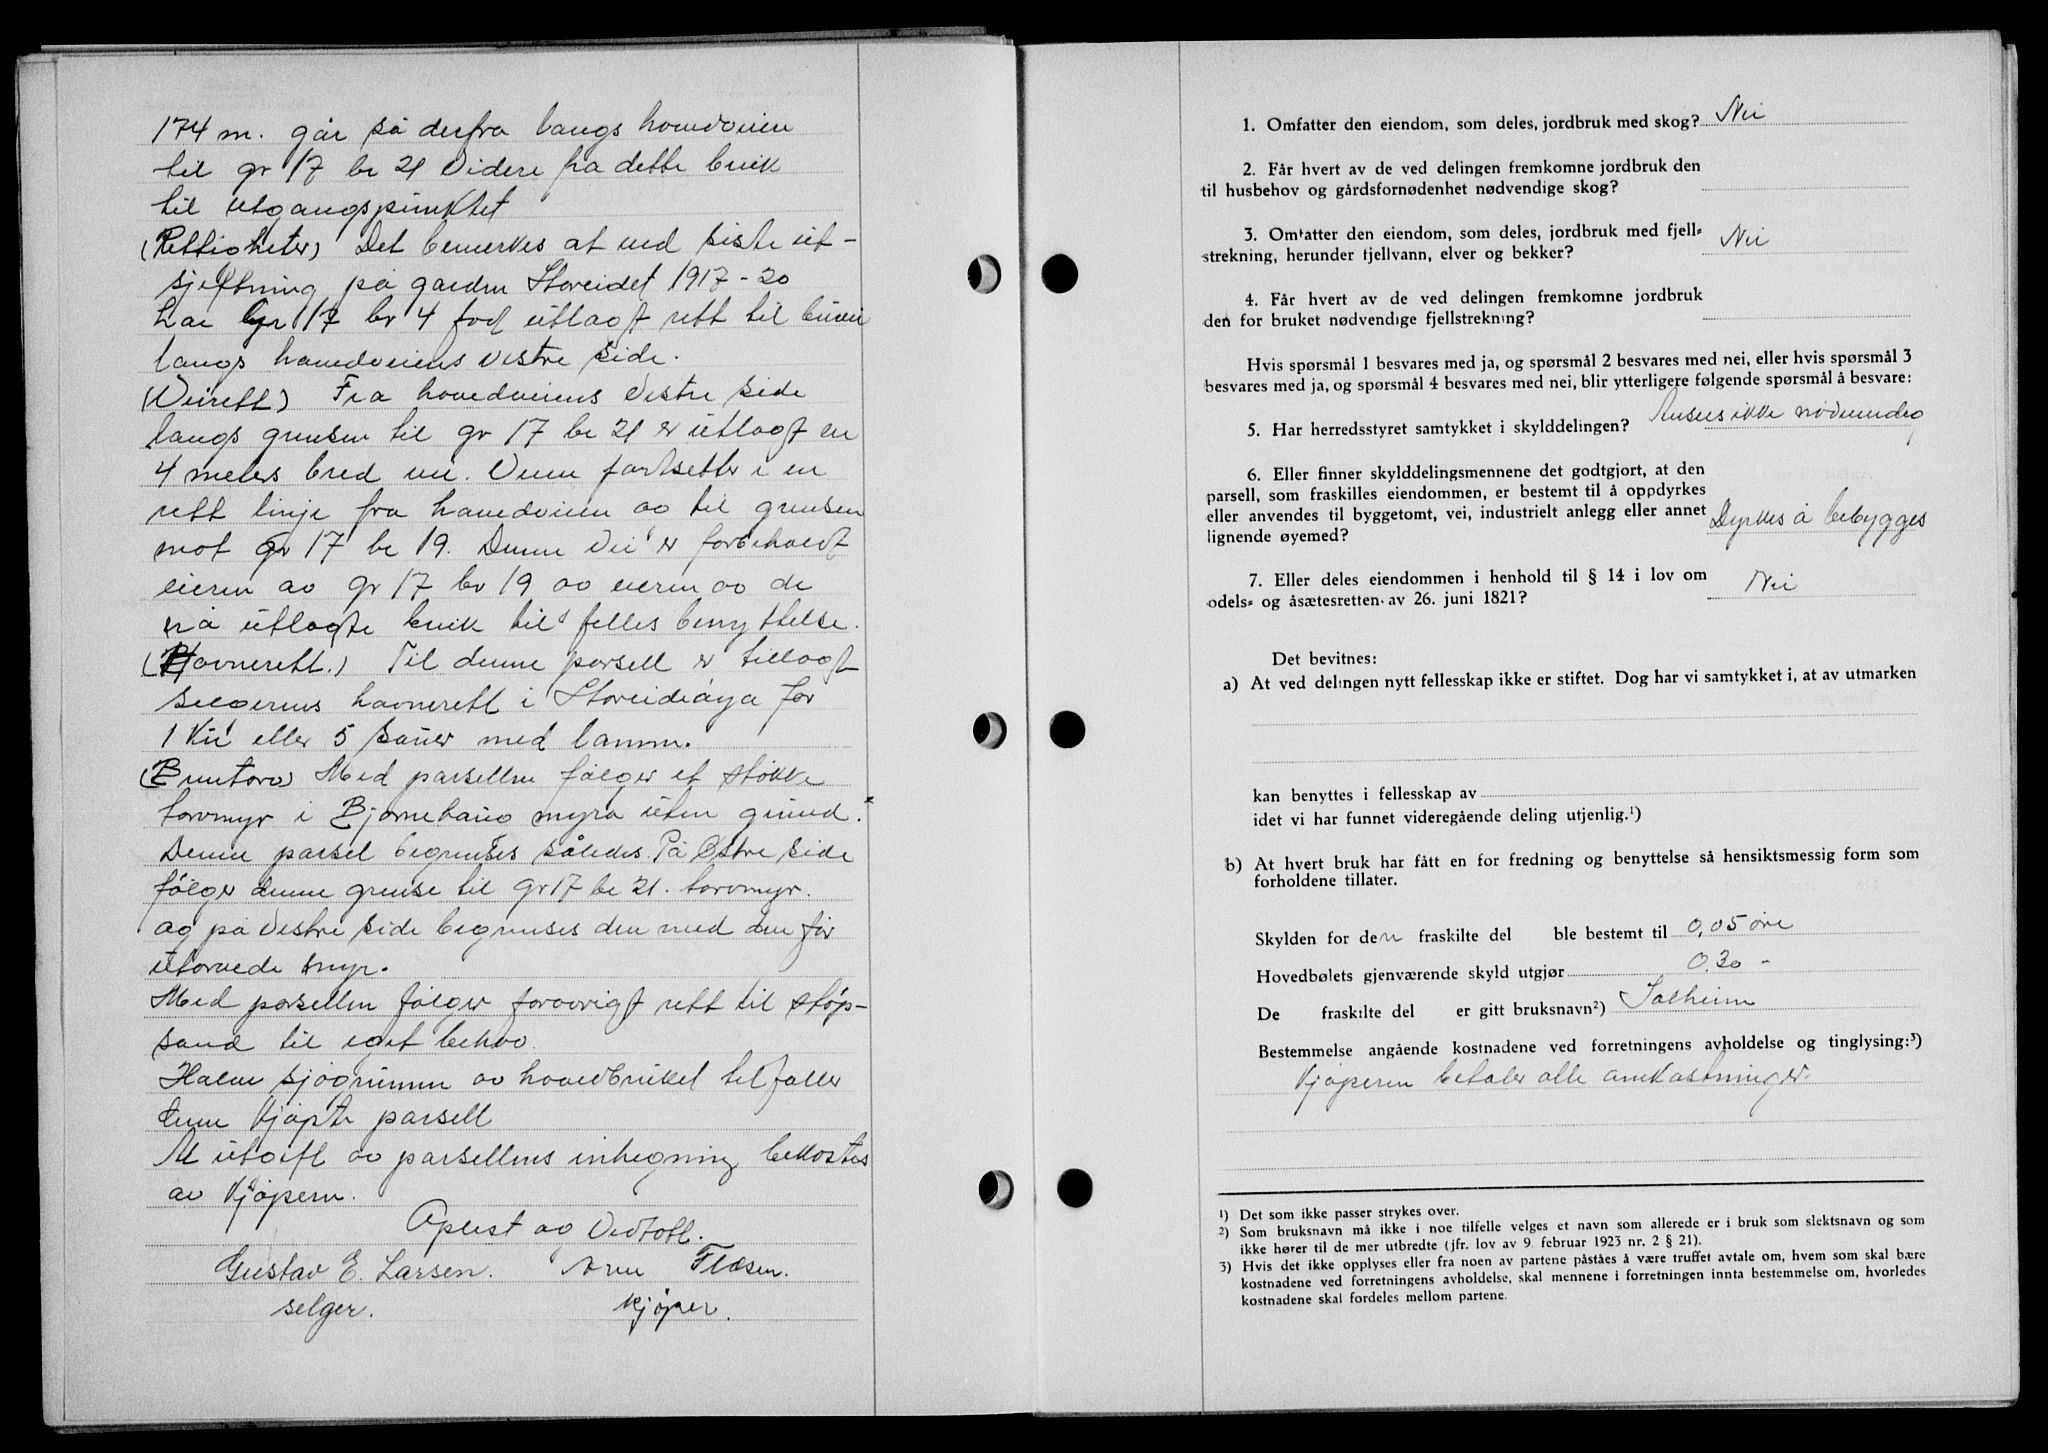 174 m. går så derfra langs hovedveien
til gr 17 br 21 Videre fra dette bruk
til utgangspunktet
(Rettigheter) Det bemerkes at ved siste ut-
skiftning på garden Storeidet 1917-20
har Gr 17 br 4 fåt utlagt rett til
langs hovedveiens vestre side.
(Veirett) Fra hovedveiens vestre side
langs grensen til gr 17 br 21 er utlagt en
4 meters bred vei. Denne fortsetter i en
rett linje fra hovedveien og til grensen
mot gr 17 br 19. Denne vei er forbeholdt
eieren av gr 17 br 19 og eieren av de
nå utlagte bruk til felles benyttelse.
(Havnerett.) Til denne parsell er tillagt
selgerens havnerett i Storeidøya for
1 Ku eller 5 sauer med lamm.
(Brentorv) Med parsellen følger et støkke
torvmyr i Bjørnehaug myra uten grund.
Denne parsel begrenses således. På Østre side
følger denne grense til gr 17 br 21. torvmyr.
og på vestre side begrenses den med den før
utorvede myr.
Med parsellen følger forøvrigt rett til støp-
sand til eget behov.
Halve sjøgrunnen av hovedbruket tilfaller
denne kjøpte parsell
Al utgift av parsellens inhegning bekostes
av kjøperen.
Oplest og Vedtatt.
Gustav E. Larsen. Arne Flæsen.
selger. kjøper.
1. Omfatter den eiendom, som deles, jordbruk med skog? Nei
2. Får hvert av de ved delingen fremkomne jordbruk den
til husbehov og gårdsfornødenhet nødvendige skog?
3. Omfatter den eiendom, som deles, jordbruk med fjell-
strekning, herunder fjellvann, elver og bekker? Nei
4. Får hvert av de ved delingen fremkomne jordbruk
den for bruket nødvendige fjellstrekning?
Hvis spørsmål 1 besvares med ja, og spørsmål 2 besvares med nei, eller hvis spørsmål 3
besvares med ja, og spørsmål 4 besvares med nei, blir ytterligere følgende spørsmål å besvare:
5. Har herredsstyret samtykket i skylddelingen? Ansees ikke nødvendig
6. Eller finner skylddelingsmennene det godtgjort, at den
parsell, som fraskilles eiendommen, er bestemt til å oppdyrkes
eller anvendes til byggetomt, vei, industrielt anlegg eller annet
lignende øyemed? Dyrkes å bebygges
7. Eller deles eiendommen i henhold til § 14 i lov om
odels- og åsætesretten av 26. juni 1821? Nei
Det bevitnes:
a) At ved delingen nytt fellesskap ikke er stiftet. Dog har vi samtykket i, at av utmarken
kan benyttes i fellesskap av
idet vi har funnet videregående deling utjenlig.1)
b) At hvert bruk har fått en for fredning og benyttelse så hensiktsmessig form som
forholdene tillater.
Skylden for den fraskilte del ble bestemt til 0,05 øre
Hovedbølets gjenværende skyld utgjør 0.30 -
De fraskilte del er gitt bruksnavn2) Solheim
Bestemmelse angående kostnadene ved forretningens avholdelse og tinglysing:3)
Kjøperen betaler alle omkostninger.
1) Det som ikke passer strykes over.
2) Som bruksnavn må ikke i noe tilfelle velges et navn som allerede er i bruk som slektsnavn og som
ikke hører til de mer utbredte (jfr. lov av 9. februar 1923 nr. 2 § 21).
3) Hvis det ikke opplyses eller fra noen av partene påståes å være truffet avtale om, hvem som skal bære
kostnadene ved forretningens avholdelse, skal mennene i forretningen innta bestemmelse om, hvorledes
kostnadene skal fordeles mellom partene.